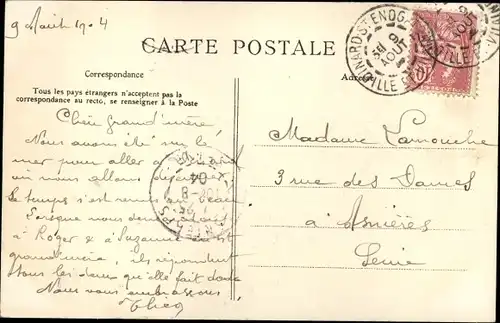 9 Août 1904
CARTE POSTALE
Correspondance
Adresse
Tous les pays étrangers n'acceptent pas la
correspondance au recto, se renseigner à la Poste
Chère Grand'mère
Nous avons été sur la
mer pour aller à
où nous allons déjeuner,
le temps s'est remis au beau
Lorsque nous demandons
à Roger & à Suzanne où est
grand'mère, ils répondent
tous les deux qu'elle fait dodo
Nous vous embrassons,
Madame Lamouche
3 rue des Dames
à Asnières
Seine
DINARD-ST ENOGAT
9
AOUT
ILLE
04